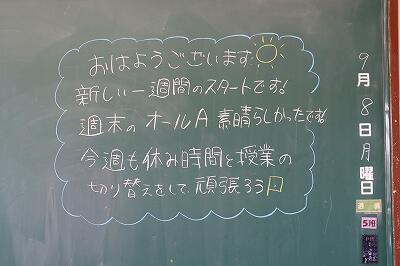 おはようございます
新しい一週間のスタートです。
週末のオールA 素晴らしかったです。
今週も休み時間と授業の
切り替えをして、頑張ろう
9月8日月曜日
週番
5班